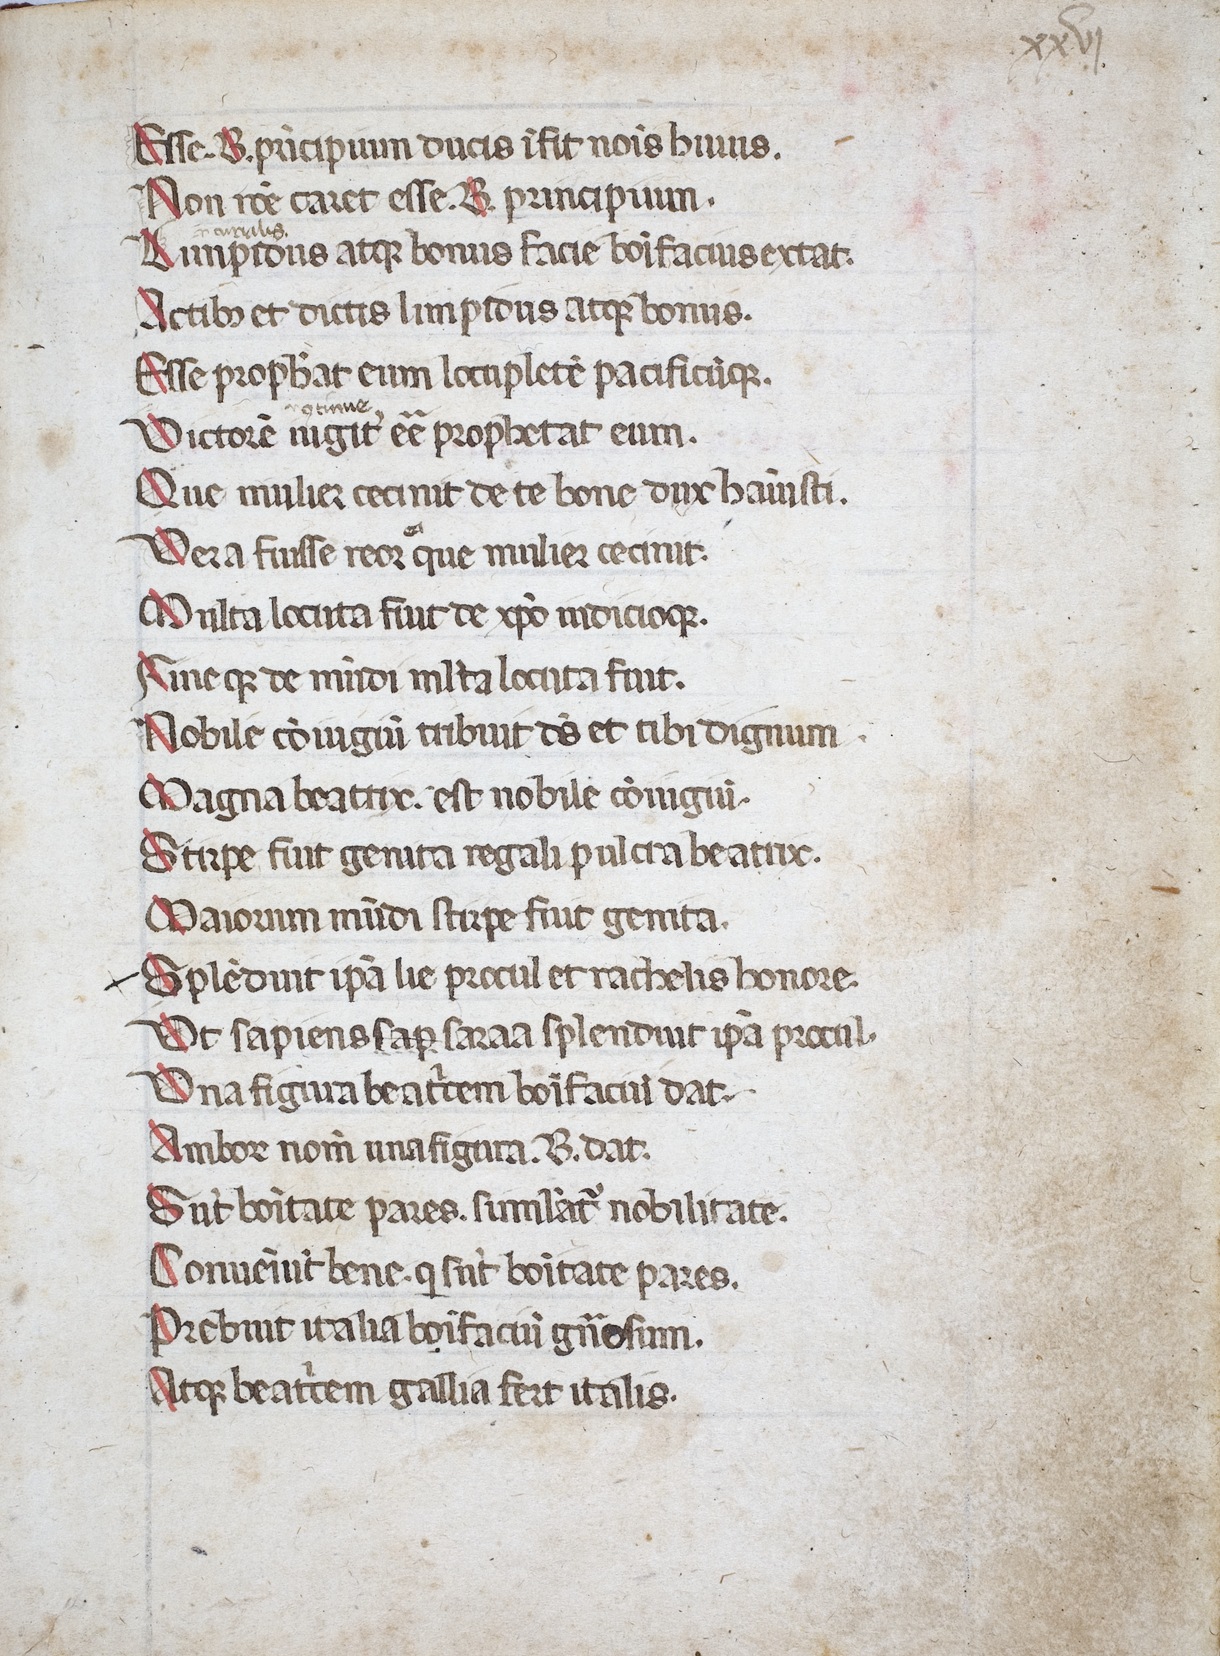 xxvj
Esse. B. pͥncipium ducis ĩfit nois̃ huius.
Non roẽ caret esse. B. principium.
.i. curialis.
Limpidus atqꝫ bonus facie boĩfacius extat.
Actibꝫ et dictis limpidus atqꝫ bonus.
Esse proph̃at eum locupletẽ pacificũqꝫ.
Victorẽ iugit᷑ eẽ prophetat eum.
Que mulier cecinit de te bone dux hauĩsti.
Vera fuisse reor que mulier cecinit.
Multa locuta fuit de xp̃o iudicioqꝫ.
Fine qꝫ de mũdi ml̃ta locuta fuit.
Nobile cõiugiũ tribuit ds̃ et tibi dignum
Magna beatrix. est nobile cõiugiũ.
Stirpe fuit genita regali pulcra beatrix.
Maiorum mũdi stirpe fuit genita.
Splẽduit ip̃a lie procul et rachelis honore.
Vt sapiens sapꝫ saraa splenduit ip̃a procul.
Vna figura beatͥcem boĩfaciũ dat.
Amboꝝ nom̃ una figura. B. dat.
Sũt boĩtate pares. similãt᷑ nobilitate.
Conueĩũt bene. q̃ sũt boĩtate pares.
Prebuit italia boĩfaciũ gñosum.
Atqꝫ beatͥcem gallia fert italis.